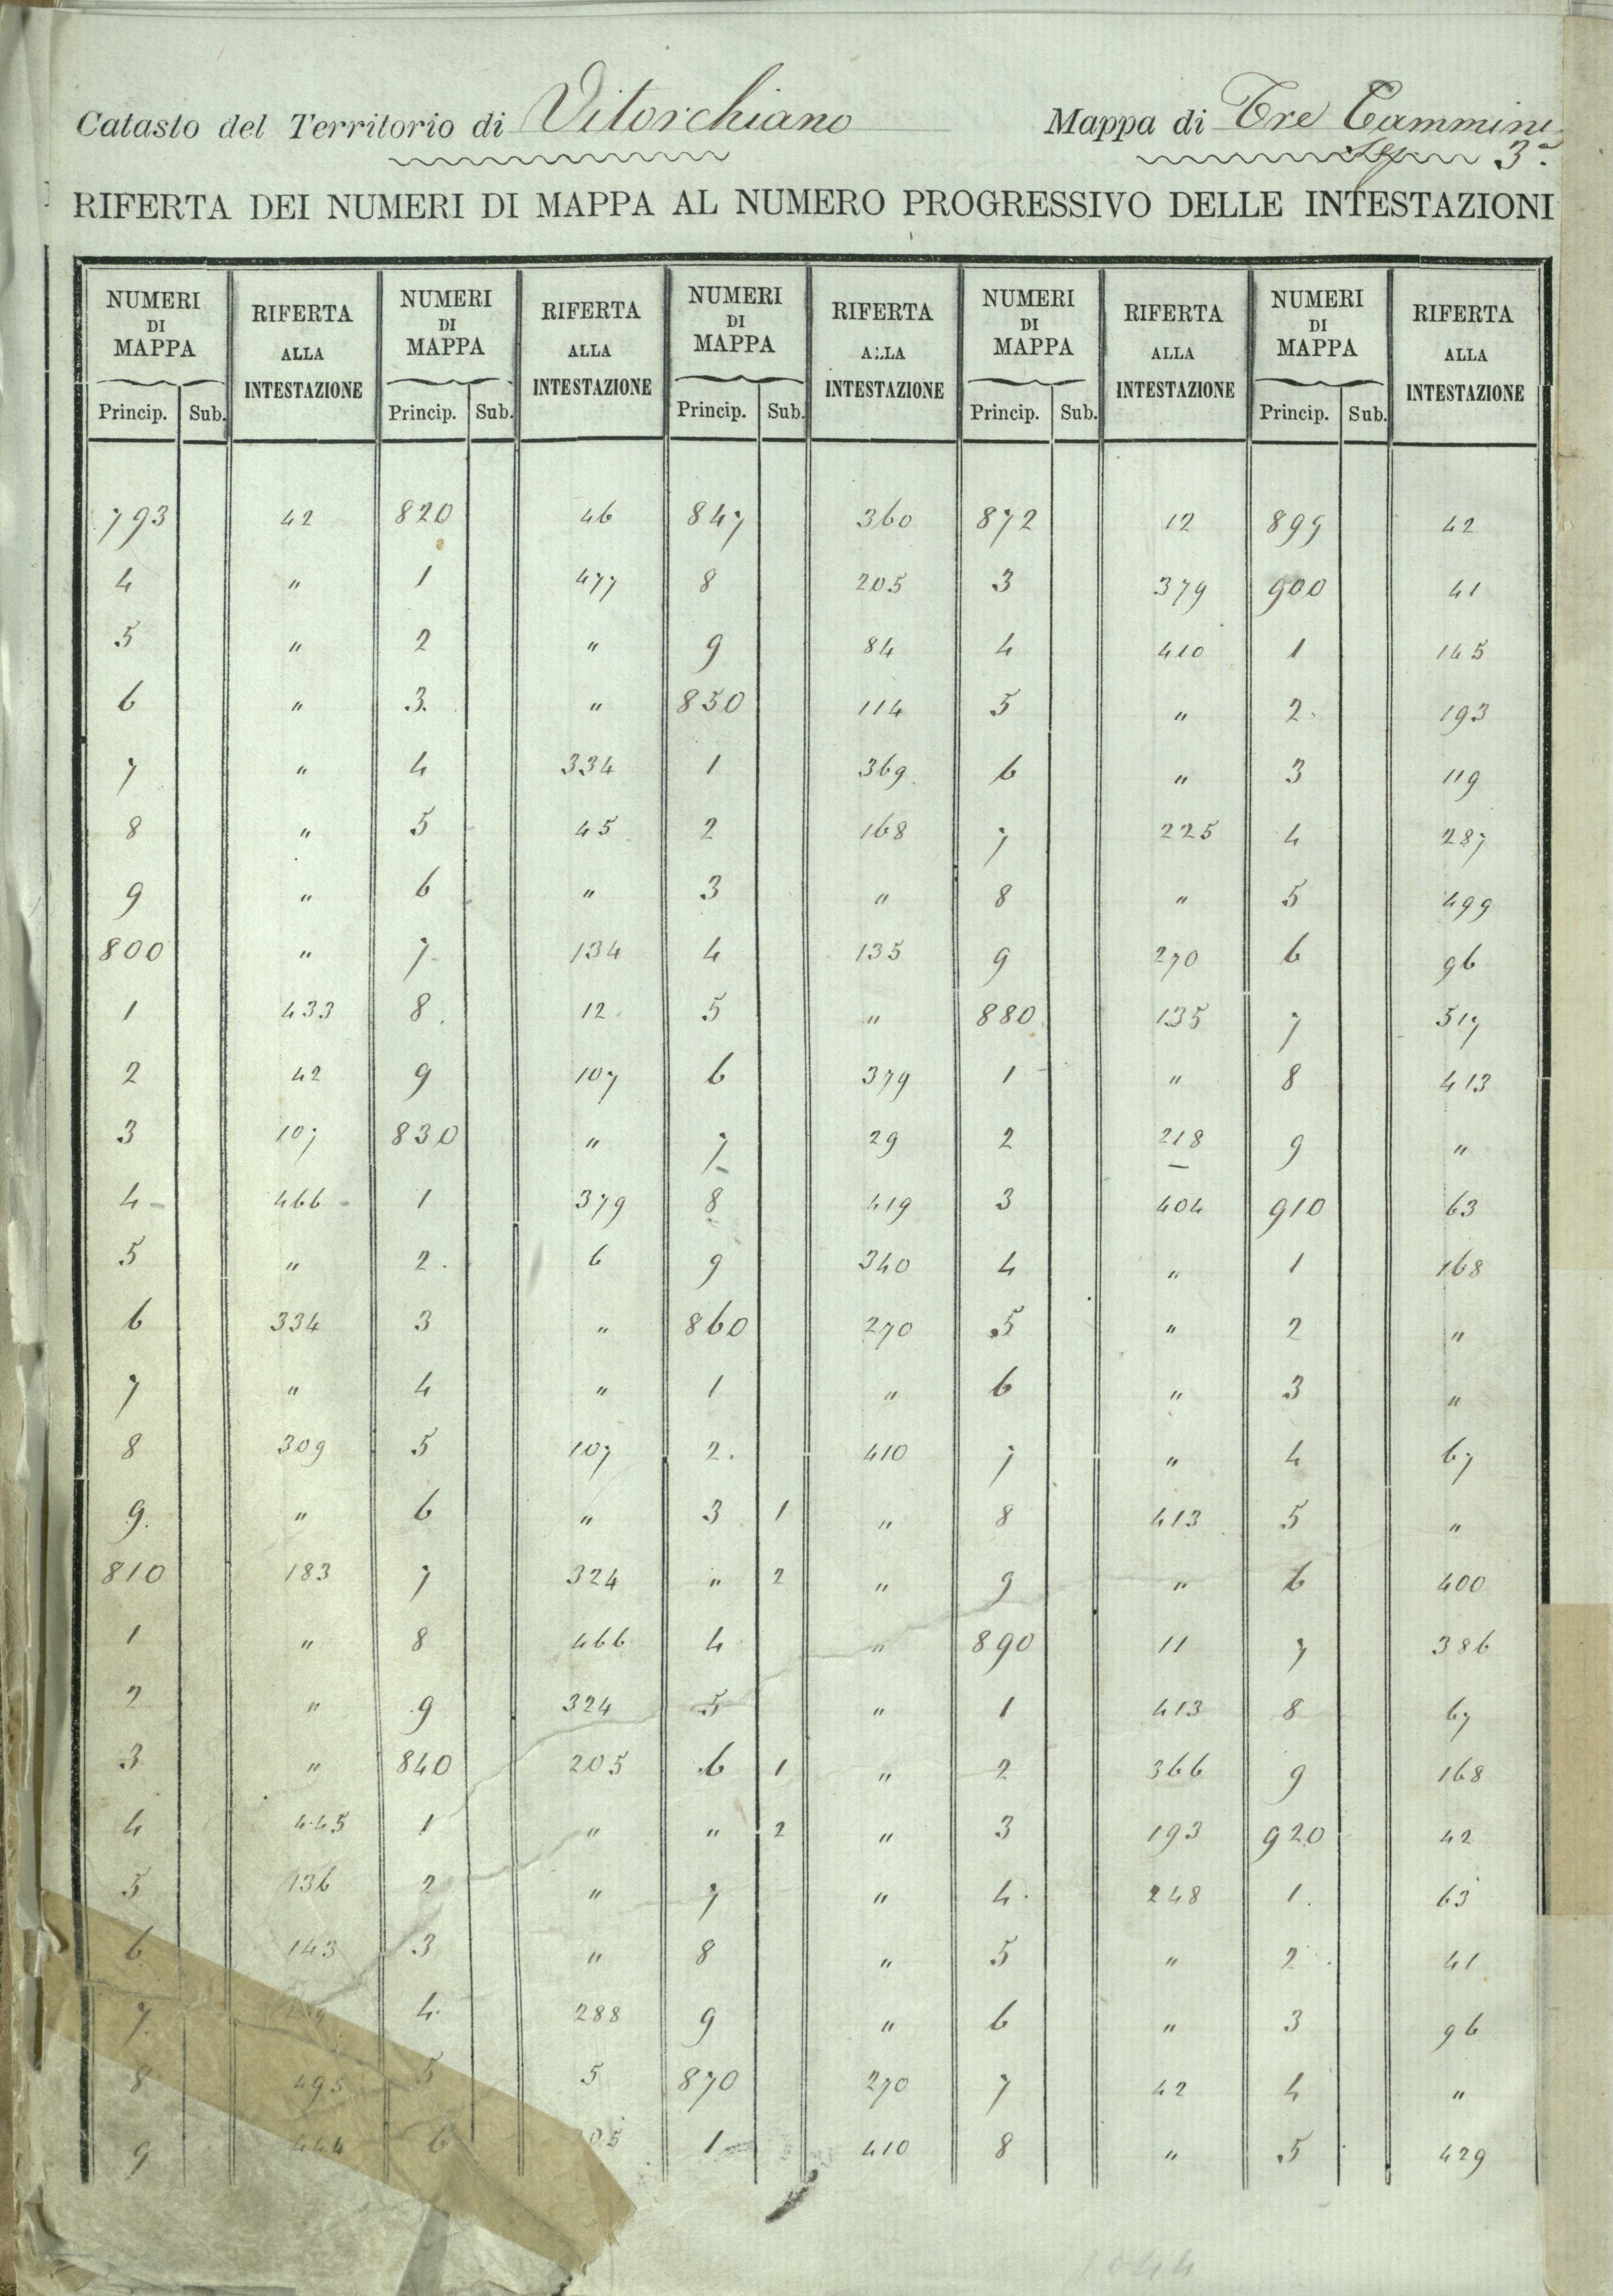 Catasto del Territorio di Vitorchiano Mappa di Tre Cammini
3ª
RIFERTA DEI NUMERI DI MAPPA AL NUMERO PROGRESSIVO DELLE INTESTAZIONI
NUMERI DI MAPPA RIFERTA ALLA INTESTAZIONE NUMERI DI MAPPA RIFERTA ALLA INTESTAZIONE NUMERI DI MAPPA RIFERTA ALLA INTESTAZIONE NUMERI DI MAPPA RIFERTA ALLA INTESTAZIONE NUMERI DI MAPPA RIFERTA ALLA INTESTAZIONE
Princip. Sub. Princip. Sub. Princip. Sub. Princip. Sub. Princip. Sub.
793 42 820 46 847 360 872 12 899 42
4 " 1 477 8 205 3 379 900 41
5 " 2 " 9 84 4 410 1 145
6 " 3 " 850 114 5 " 2 193
7 " 4 334 1 369 6 " 3 119
8 " 5 45 2 168 7 225 4 287
9 " 6 " 3 " 8 " 5 499
800 " 7 134 4 135 9 270 6 96
1 433 8 12 5 " 880 135 7 517
2 42 9 107 6 379 1 " 8 413
3 107 830 " 7 29 2 218 9 "
4 466 1 379 8 419 3 404 910 63
5 " 2 6 9 340 4 " 1 168
6 334 3 " 860 270 5 " 2 "
7 " 4 " 1 " 6 " 3 "
8 309 5 107 2 410 7 " 4 67
9 " 6 " 3 1 " 8 413 5 "
810 183 7 324 " 2 " 9 " 6 400
1 " 8 466 4 " 890 11 7 386
2 " 9 324 5 " 1 413 8 67
3 " 840 205 6 1 " 2 366 9 168
4 445 1 " " 2 " 3 193 920 42
5 136 2 " 7 " 4 248 1 63
6 143 3 " 8 " 5 " 2 41
7 4 288 9 " 6 " 3 96
8 495 5 5 870 270 7 42 4 "
9 444 6 1 410 8 " 5 429